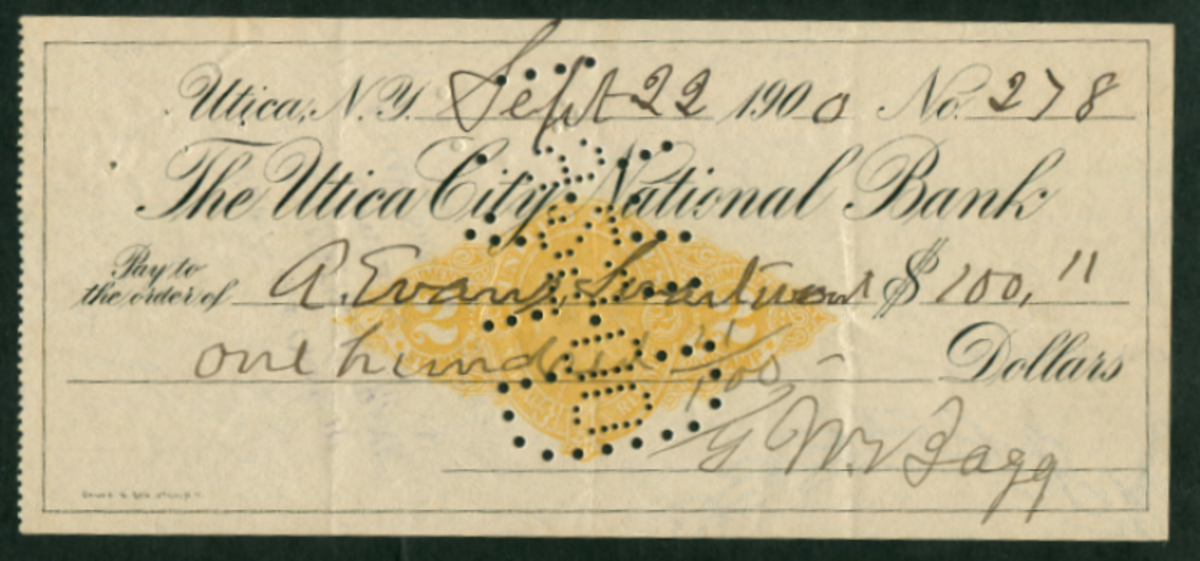 Utica, N.Y. Sept 22 1900 No. 278
The Utica City National Bank
Pay to
the order of A. Evans, $ 100, "
one hundred "/100 - Dollars
G W. Bagg